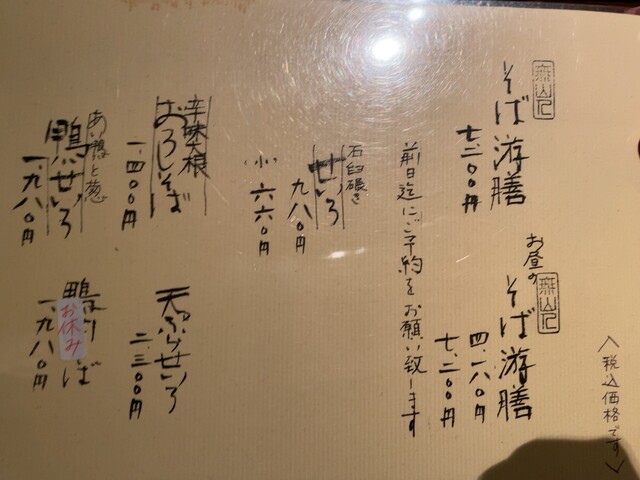 〈税込価格です〉
無山人
そば游膳
七、二〇〇円
お昼の
無山人
そば游膳
四、一八〇円
七、二〇〇円
前日迄にご予約をお願い致します
石臼碾き
せいろ
九八〇円
小 六六〇円
辛味大根
おろしそば
一、四〇〇円
天ぷらせいろ
二、三〇〇円
あい鴨と葱
鴨せいろ
一、九八〇円
鴨 そば
お休み
一、九八〇円